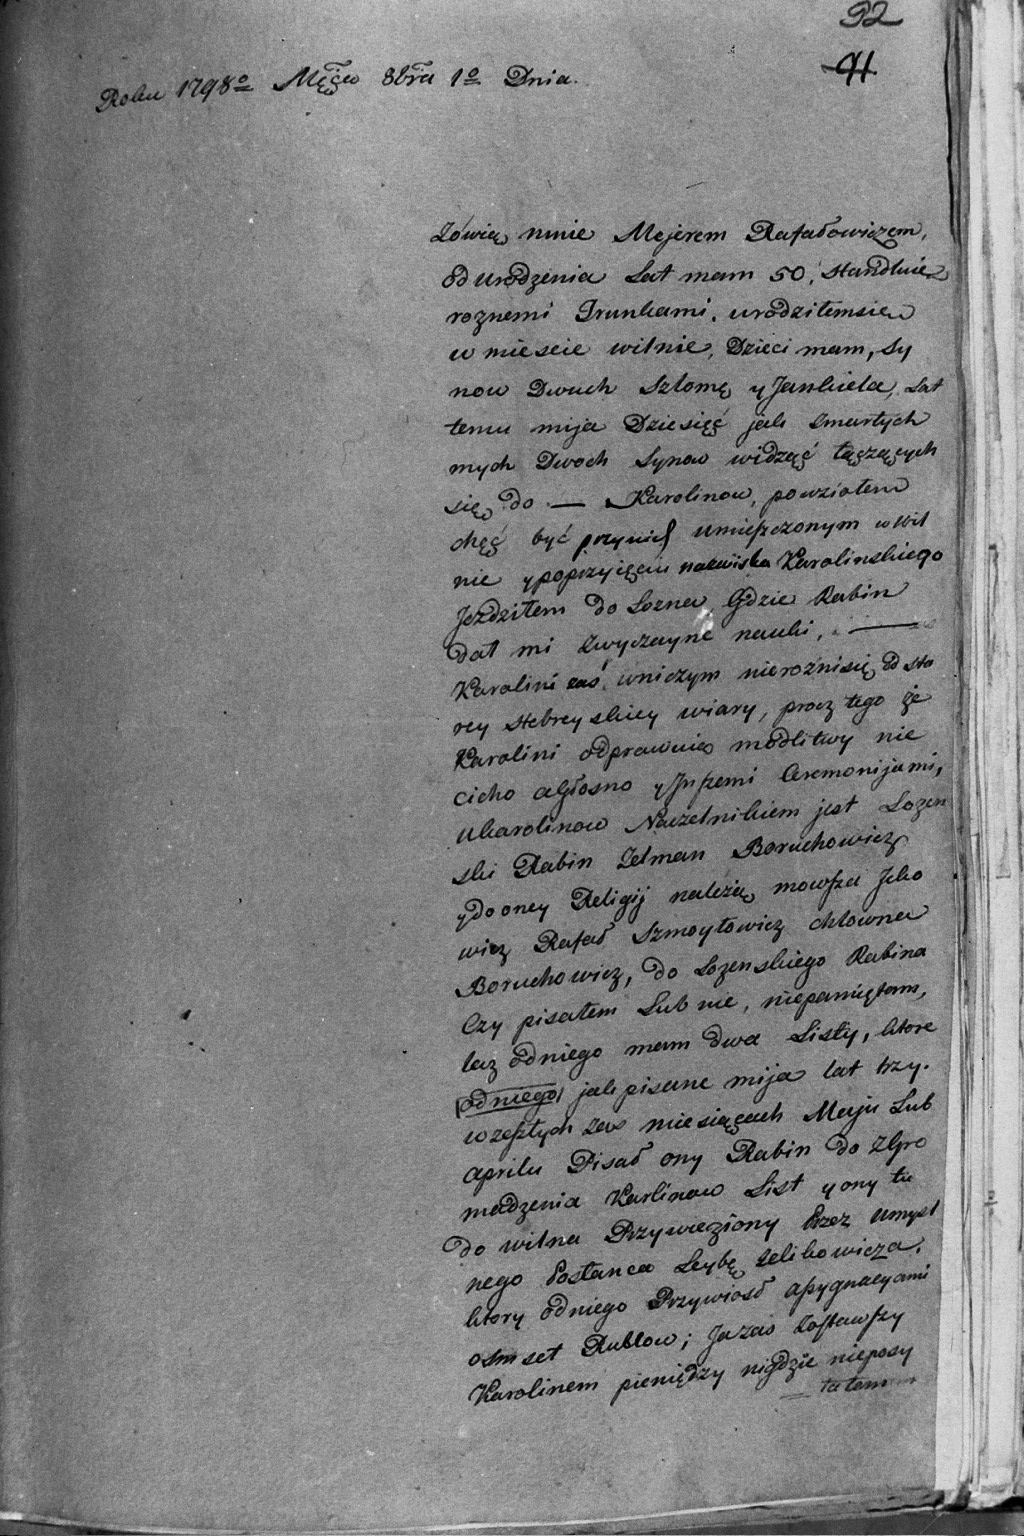 92
41
Roku 1798o Męśca 8bra 1o Dnia.
Zówią mnie Mejerem Rafałowiczem,
od urodzenia Lat mam 50, Handluię
roznemi Trunkami, urodziłemsię
w miescie wilnie, Dzieci mam, Sy
now Dwuch Szlomę y Jankiela, Lat
temu mija Dziesięć jak Zmarłych
mych Dwoch Synow widząć łączących
się do — Karolinow, powziołem
chęć być przynich umieszczonym w wil
nie y poprzyięciu nazwiska Karolinskiego
Jezdziłem do Lozna, Gdzie Rabin
dał mi Zwyczayne nauki, —
Karolini zaś wniczym nierożnisię od sta
rey Hebreyskiey wiary, procz tego że
Karolini odprawuio modlitwy nie
cicho a Głosno y Jnszemi Ceremonijami,
u Karolinow Naczelnikiem jest Lozen
ski Rabin Zelman Boruchowicz
y do oney Religij należą mowsza Jcko
wicz Rafał Szmoyłowicz chłowna
Boruchowicz, do Lozenskiego Rabina
Czy pisałem Lub nie, niepamiętam,
lecz odniego mam dwa Listy, ktore
odniego jak pisane mija lat trzy.
w zeszłych zas miesiącach Maju Lub
aprilu Pisał ony Rabin do zGro
madzenia Karlinow List y ony tu
do wilna Przywieziony Przez umysl
nego Posłanca Leybę Zelikowicza,
ktory odniego Przywiosł assygnacyami
osmset Rublow; Ja zas Zostawszy
Karolinem pieniędzy nigdzie nieposy
łałem